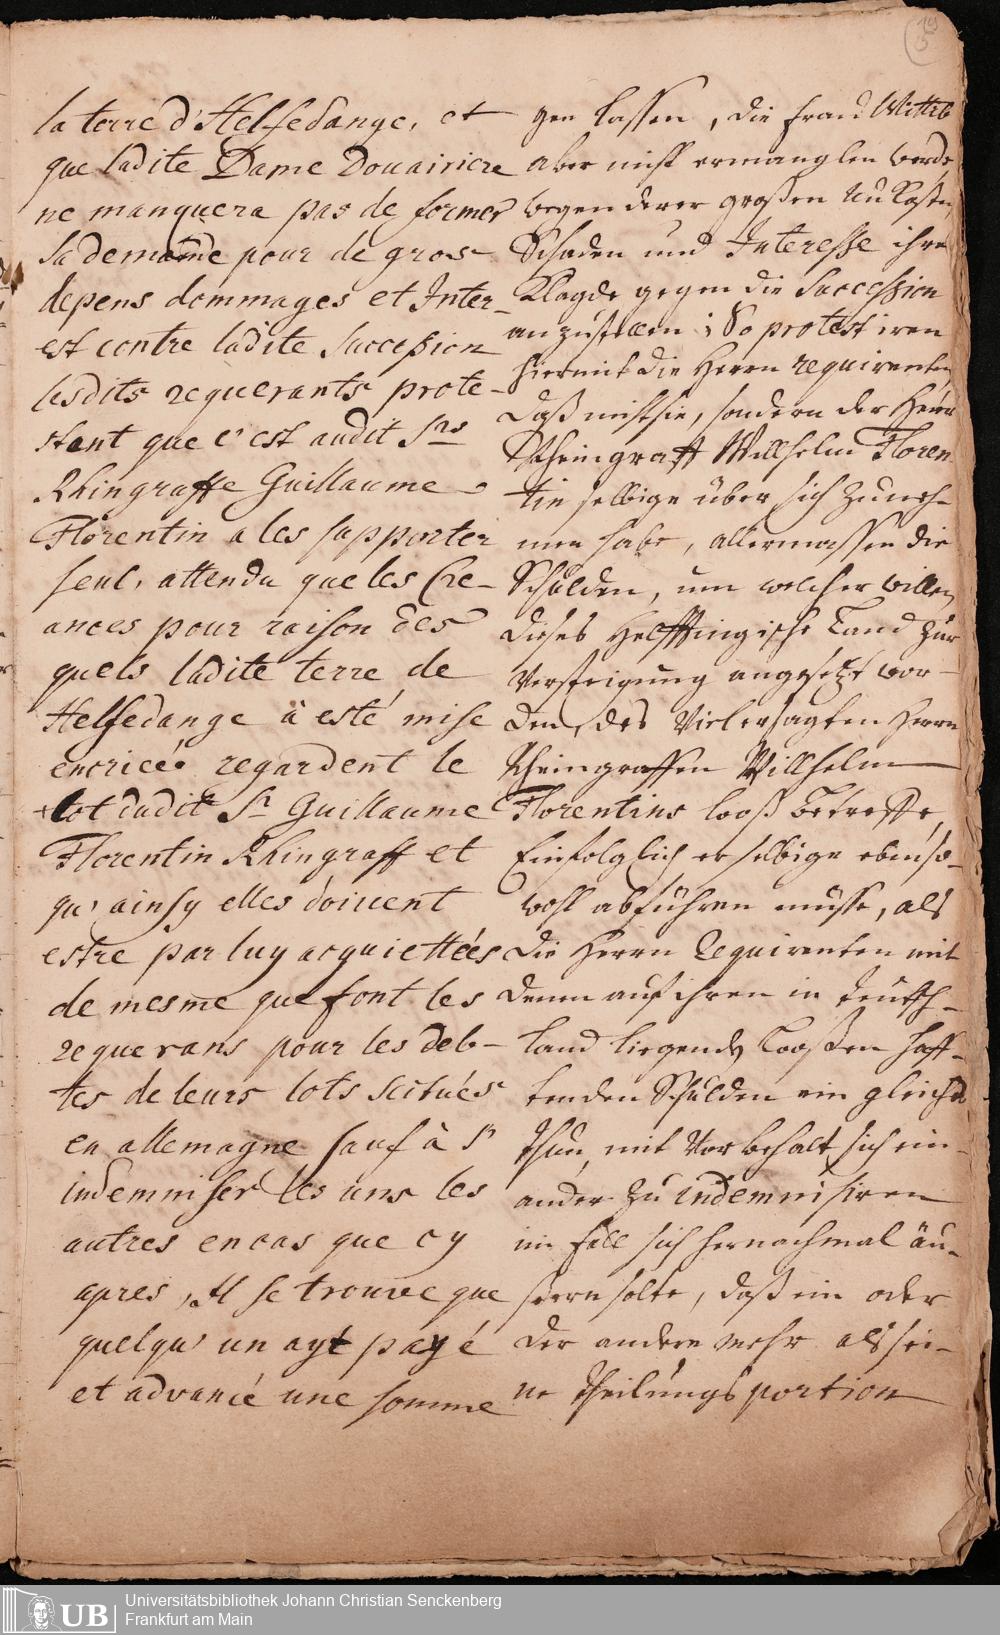 la terre d'Helfedange, et
que ladite Dame Douairiere
ne manquera pas de former
sa demande pour de gros
depens dommages et Inter-
est contre ladite Succession
lesdits requerants prote-
stant que c'est audit Srs
Rhingraffe Guillaume
Florentin a les supporter
seul, attendu que les Cre-
ances pour raison des
quels ladite terre de
Helfedange à esté mise
encriée regardent le
lot dudit Sr Guillaume
Florentin Rhingraff et
qu'ainsy elles doivent
estre par luy acquiettées
de mesme que font les
requerans pour les deb-
tes de leurs lots scitués
en allemagne sauf à s'
indemniser les uns les
autres encas que cy
apres, Il se trouve que
quelqu'un ayt payé
et advancé une somme
gen lassen, die Frau Wittib
aber nicht ermanglen werde,
wegen derer großen Unkosten,
Schaden und Interesse ihre
Klagde gegen die Succession
anzustellen; So protestiren
hiermit die Herrn requirenten,
daß nicht sie, sondern der Herr
Rheingraff Willhelm Floren
tin selbige über sich zuneh-
men habe, allermassen die
Schulden, um welcher willen
dieses Helffingische Land zur
Versteigung angesetzt wor-
den, des Vielersagten Herrn
Rheingraffen Willhelm
Florentins looß betreffe,
Einfolglich er selbige ebenso-
wohl abführen müsse, als
die Herrn Requirenten mit
denen auf ihren in Teutsch-
land liegende Looßen haff-
tenden Schulden ein gleiches
thun, mit Vorbehalt sich ein-
ander zu indemnisiren
im fall sich hernachmal äu-
sern solte, daß ein oder
der andere mehr als sei-
ne Theilungs portion
UB
Universitätsbibliothek Johann Christian Senckenberg
Frankfurt am Main